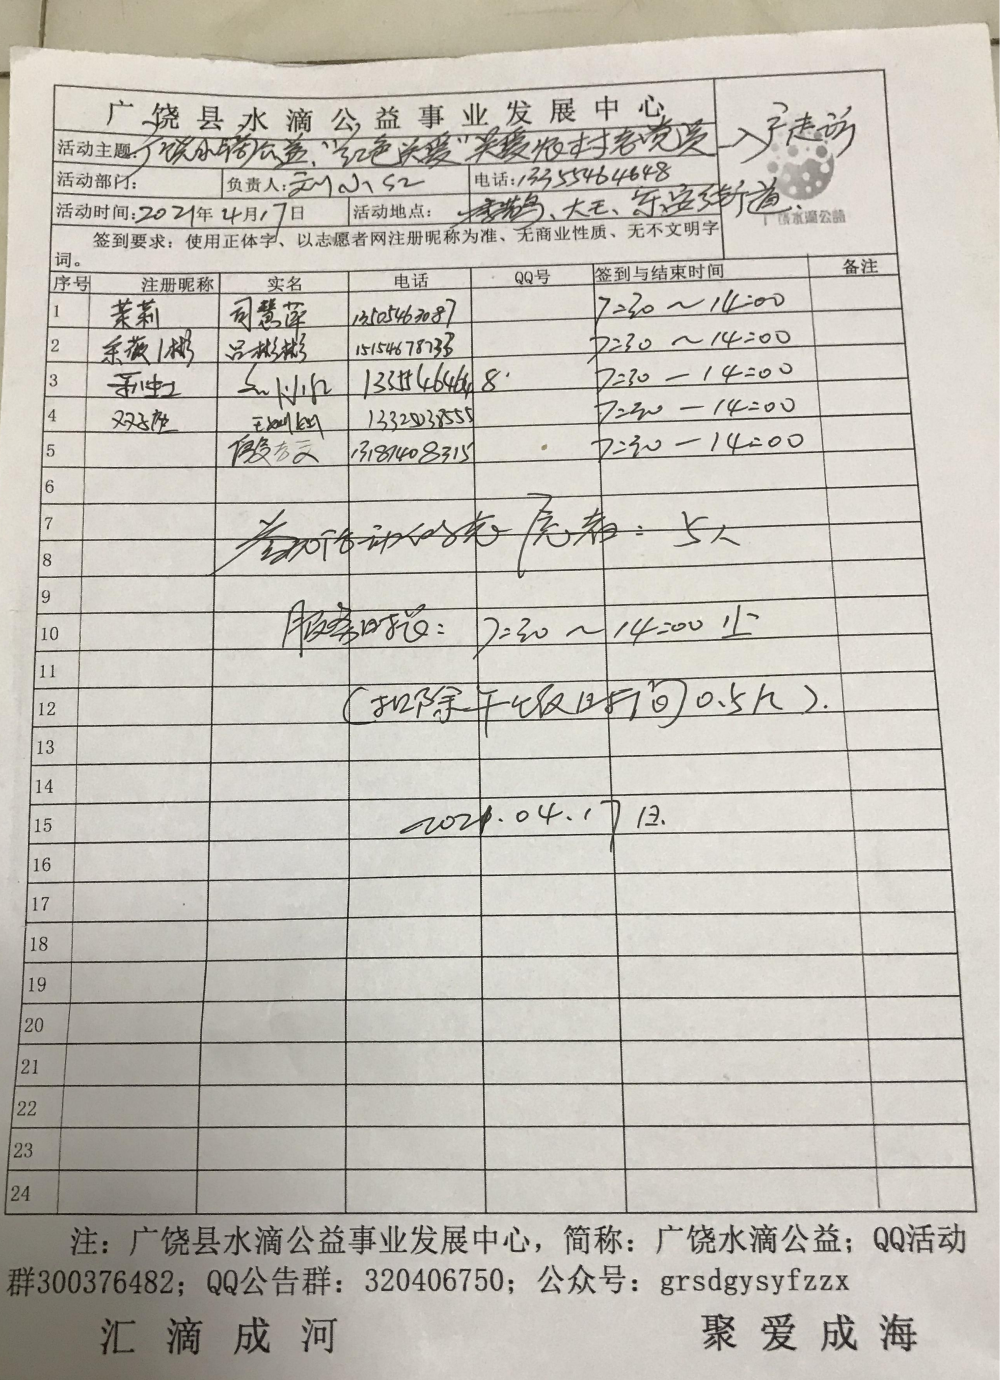 广饶县水滴公益事业发展中心
活动主题: 广饶水滴公益"红色关爱"关爱农村老党员入户走访
活动部门: 负责人: 刘小红 电话: 13355464648
活动时间: 2021年4月17日 活动地点: 大王、乐安街道
广饶水滴公益
签到要求: 使用正体字、以志愿者网注册昵称为准、无商业性质、无不文明字
词。
序号 注册昵称 实名 电话 QQ号 签到与结束时间 备注
1 茉莉 司慧萍 13505463087 7:30~14:00
2 紫薇1彬 吕彬彬 15154678733 7:30~14:00
3 13355464648 7:30-14:00
4 双子座 7:30-14:00
5 13181408315 7:30-14:00
6
7
参加活动的志愿者: 5人
8
9
10 服务时间: 7:30~14:00止
11
12 (扣除午饭时间0.5h).
13
14
15 2021.04.17日.
16
17
18
19
20
21
22
23
24
注: 广饶县水滴公益事业发展中心, 简称: 广饶水滴公益; QQ活动
群300376482; QQ公告群: 320406750; 公众号: grsdgysyfzzx
汇滴成河 聚爱成海